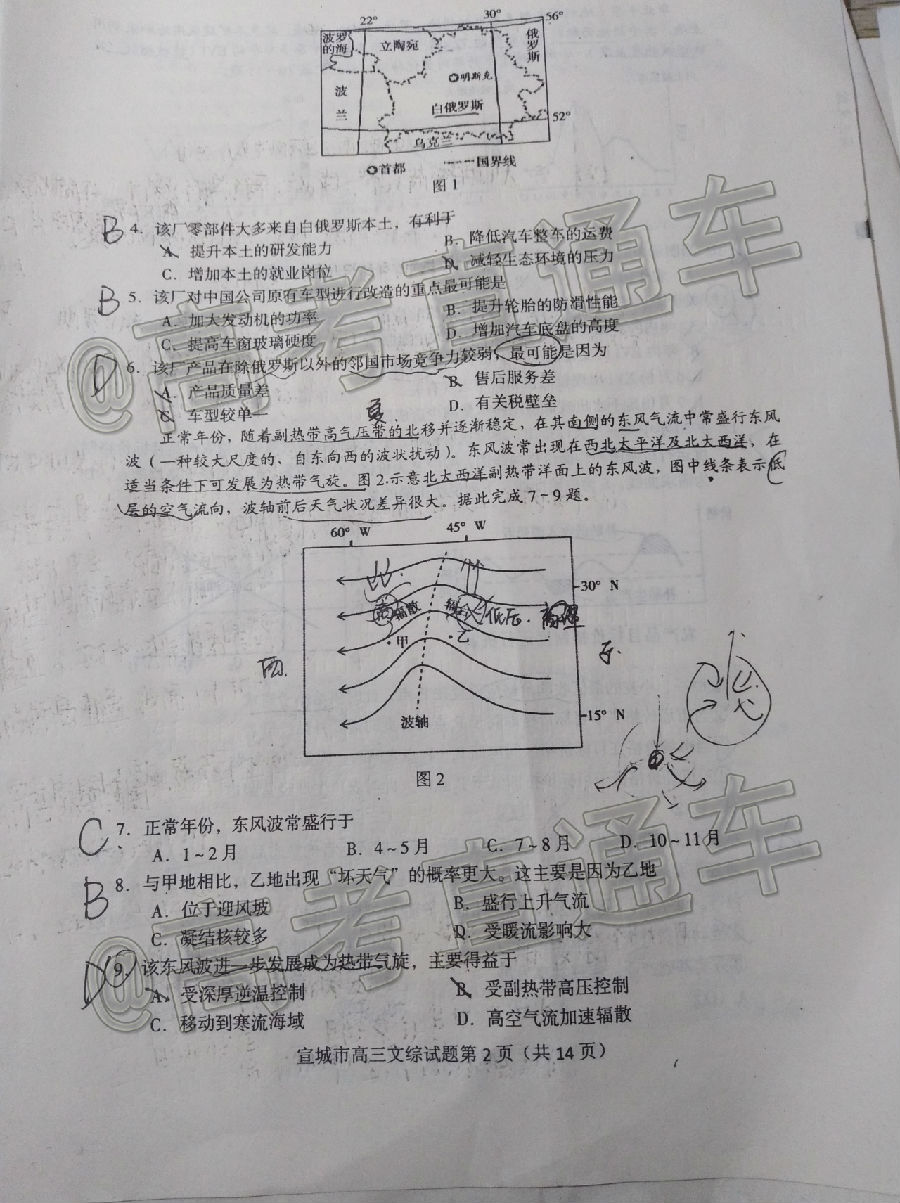 22° 30° 56°
波罗的海
立陶宛
俄罗斯
明斯克
波兰
白俄罗斯
52°
乌克兰
首都 国界线
图1
B 4．该厂零部件大多来自白俄罗斯本土，有利于
A．提升本土的研发能力 B．降低汽车整车的运费
C．增加本土的就业岗位 D．减轻生态环境的压力
B 5．该厂对中国公司原有车型进行改造的重点最可能是
A．加大发动机的功率 B．提升轮胎的防滑性能
C．提高车窗玻璃硬度 D．增加汽车底盘的高度
D 6．该厂产品在除俄罗斯以外的邻国市场竞争力较弱，最可能是因为
A．产品质量差 B．售后服务差
C．车型较单一 D．有关税壁垒
夏
正常年份，随着副热带高气压带的北移并逐渐稳定，在其南侧的东风气流中常盛行东风
波（一种较大尺度的、自东向西的波状扰动）。东风波常出现在西北太平洋及北大西洋，在
适当条件下可发展为热带气旋。图2示意北大西洋副热带洋面上的东风波，图中线条表示低
层的空气流向，波轴前后天气状况差异很大。据此完成7～9题。
60° W 45° W
30° N
辐散
低压
甲 乙
西 东
15° N
波轴
图2
C 7．正常年份，东风波常盛行于
A．1～2月 B．4～5月 C．7～8月 D．10～11月
B 8．与甲地相比，乙地出现“坏天气”的概率更大。这主要是因为乙地
A．位于迎风坡 B．盛行上升气流
C．凝结核较多 D．受暖流影响大
D 9．该东风波进一步发展成为热带气旋，主要得益于
A．受深厚逆温控制 B．受副热带高压控制
C．移动到寒流海域 D．高空气流加速辐散
宣城市高三文综试题第2页（共14页）
@高考直通车
@高考直通车